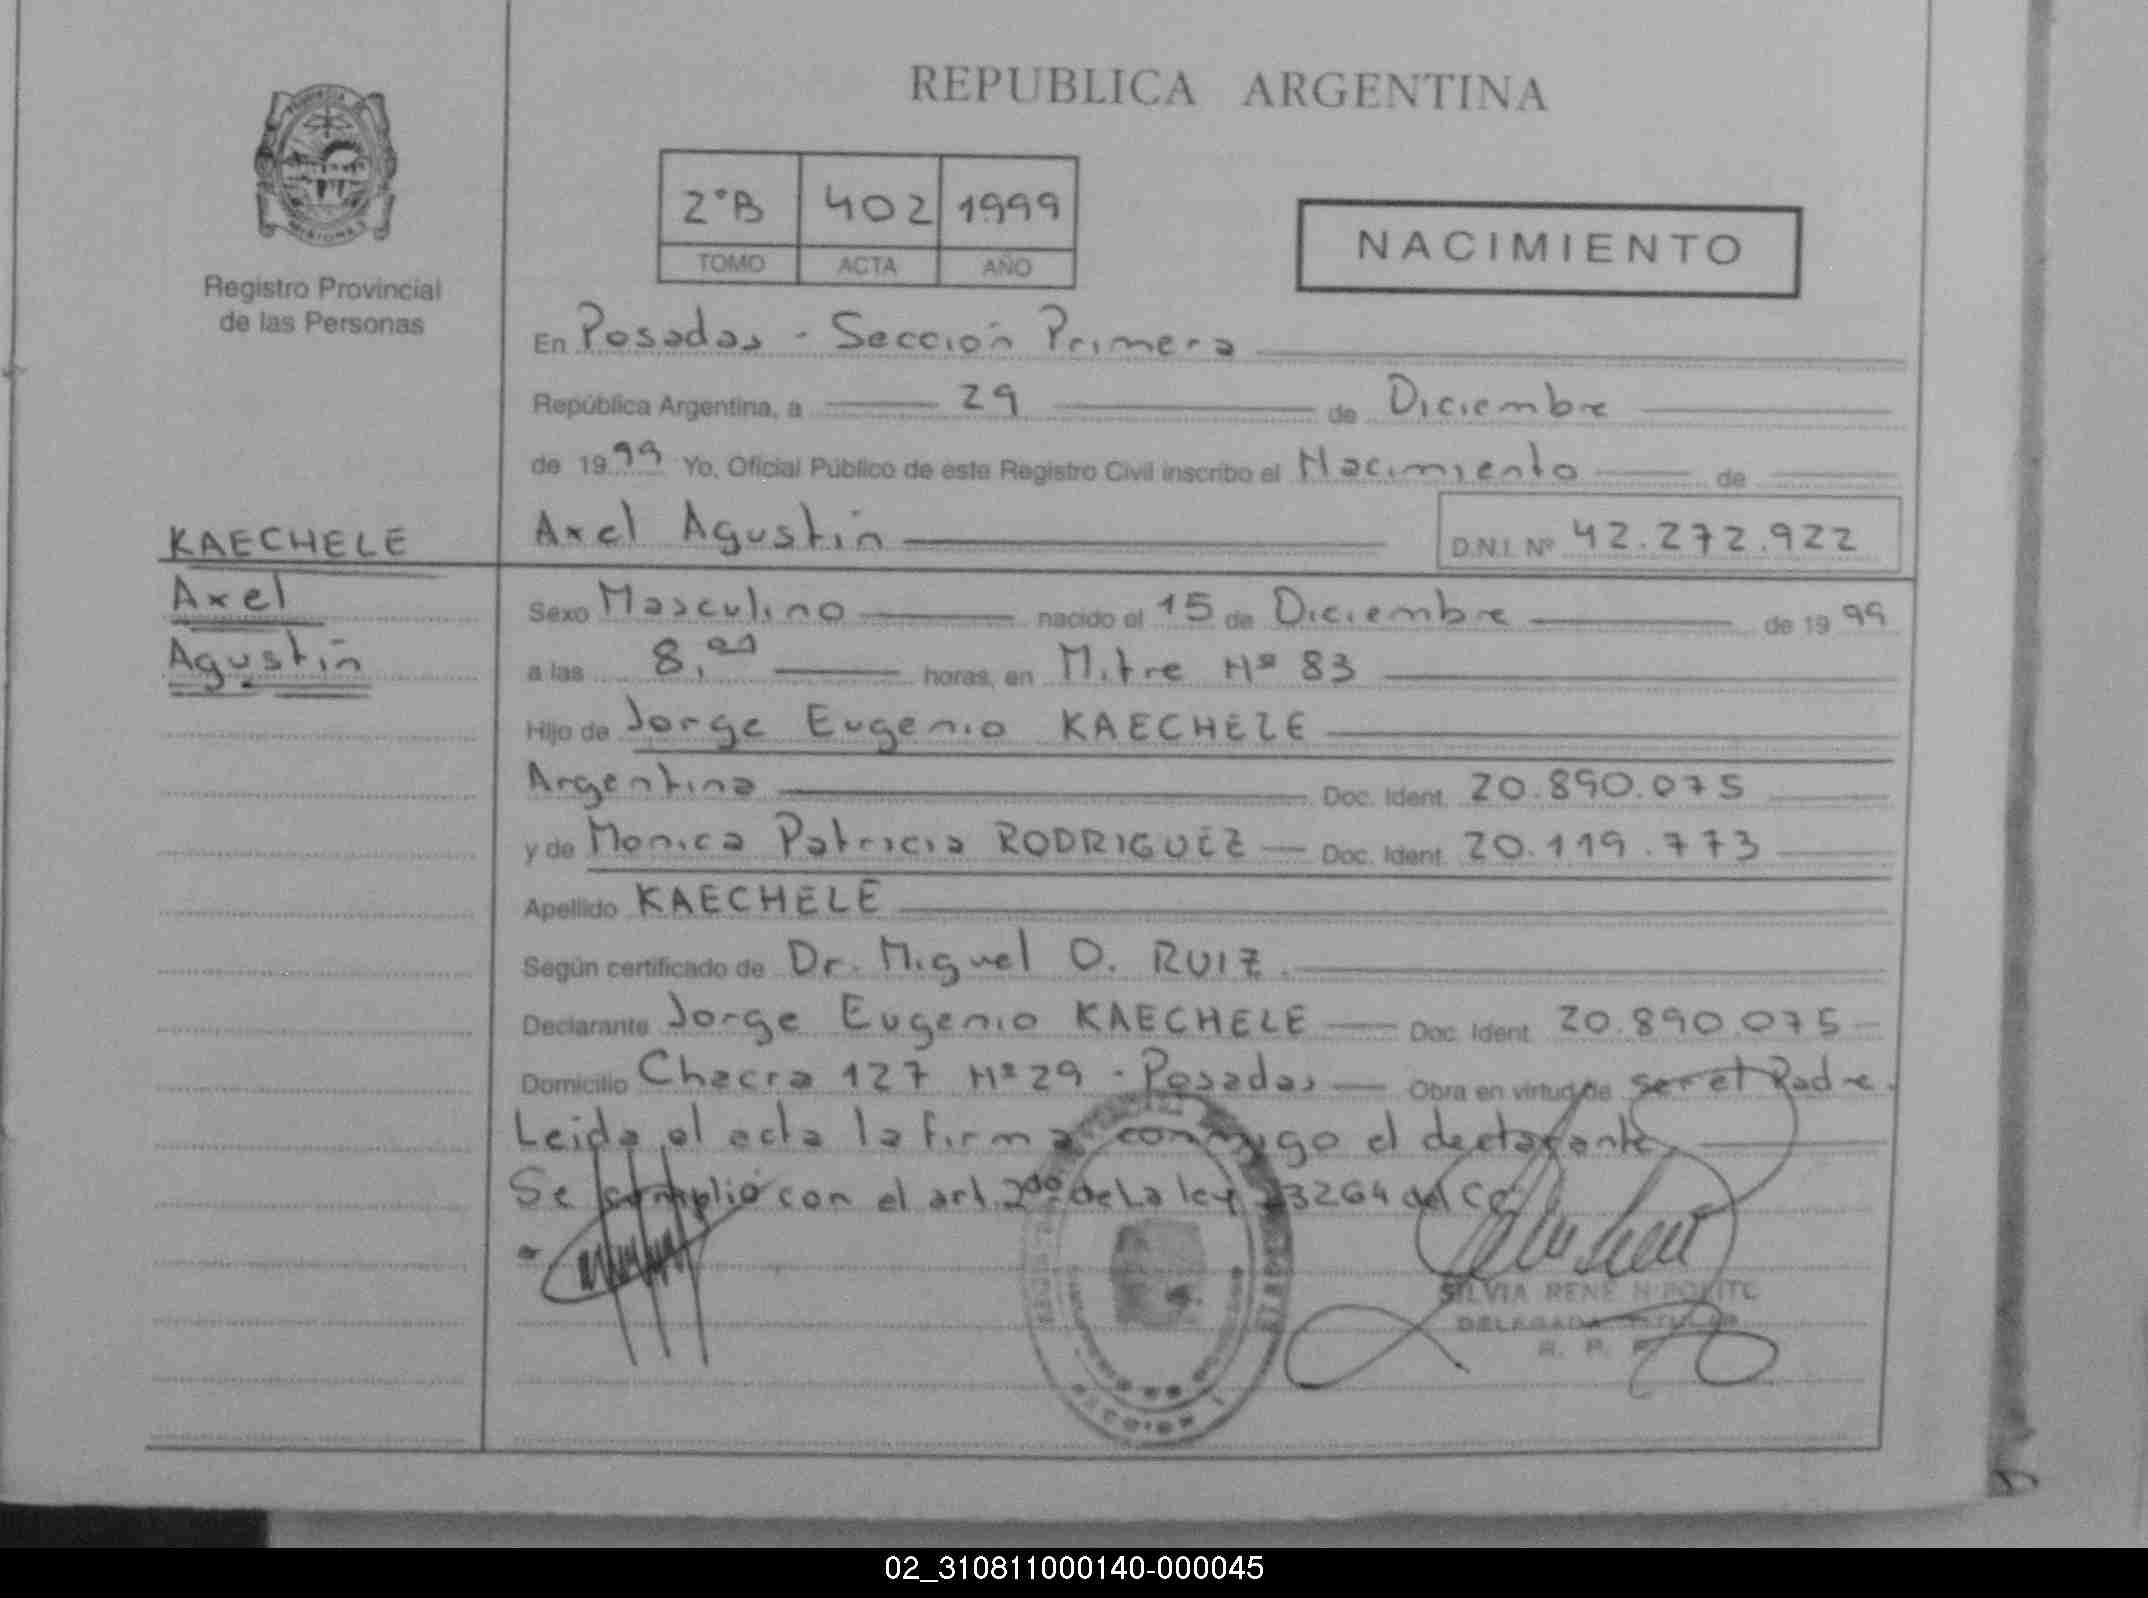 REPUBLICA ARGENTINA
2°B 402 1999
TOMO ACTA AÑO
NACIMIENTO
Registro Provincial
de las Personas
En Posadas - Sección Primera
República Argentina, a 29 de Diciembre
de 1999 Yo, Oficial Público de este Registro Civil inscribo el Nacimiento de
KAECHELE
Axel Agustín D.N.I. Nº 42.272.922
Axel
Agustín
Sexo Masculino nacido el 15 de Diciembre de 1999
a las 8,00 horas, en Mitre Nº 83
Hijo de Jorge Eugenio KAECHELE
Argentina Doc. Ident. 20.890.075
y de Monica Patricia RODRIGUEZ Doc. Ident. 20.119.773
Apellido KAECHELE
Según certificado de Dr. Miguel O. RUIZ
Declarante Jorge Eugenio KAECHELE Doc. Ident. 20.890.075
Domicilio Chacra 127 Nº 29 - Posadas Obra en virtud de ser el Padre.
Leida el acta la firma conmigo el declarante
Se cumplió con el art. 2do de la ley 23264 del CC
SILVIA RENE HIPOLITO
DELEGADA TITULAR
R. P. P.
SECCION 1
02_310811000140-000045